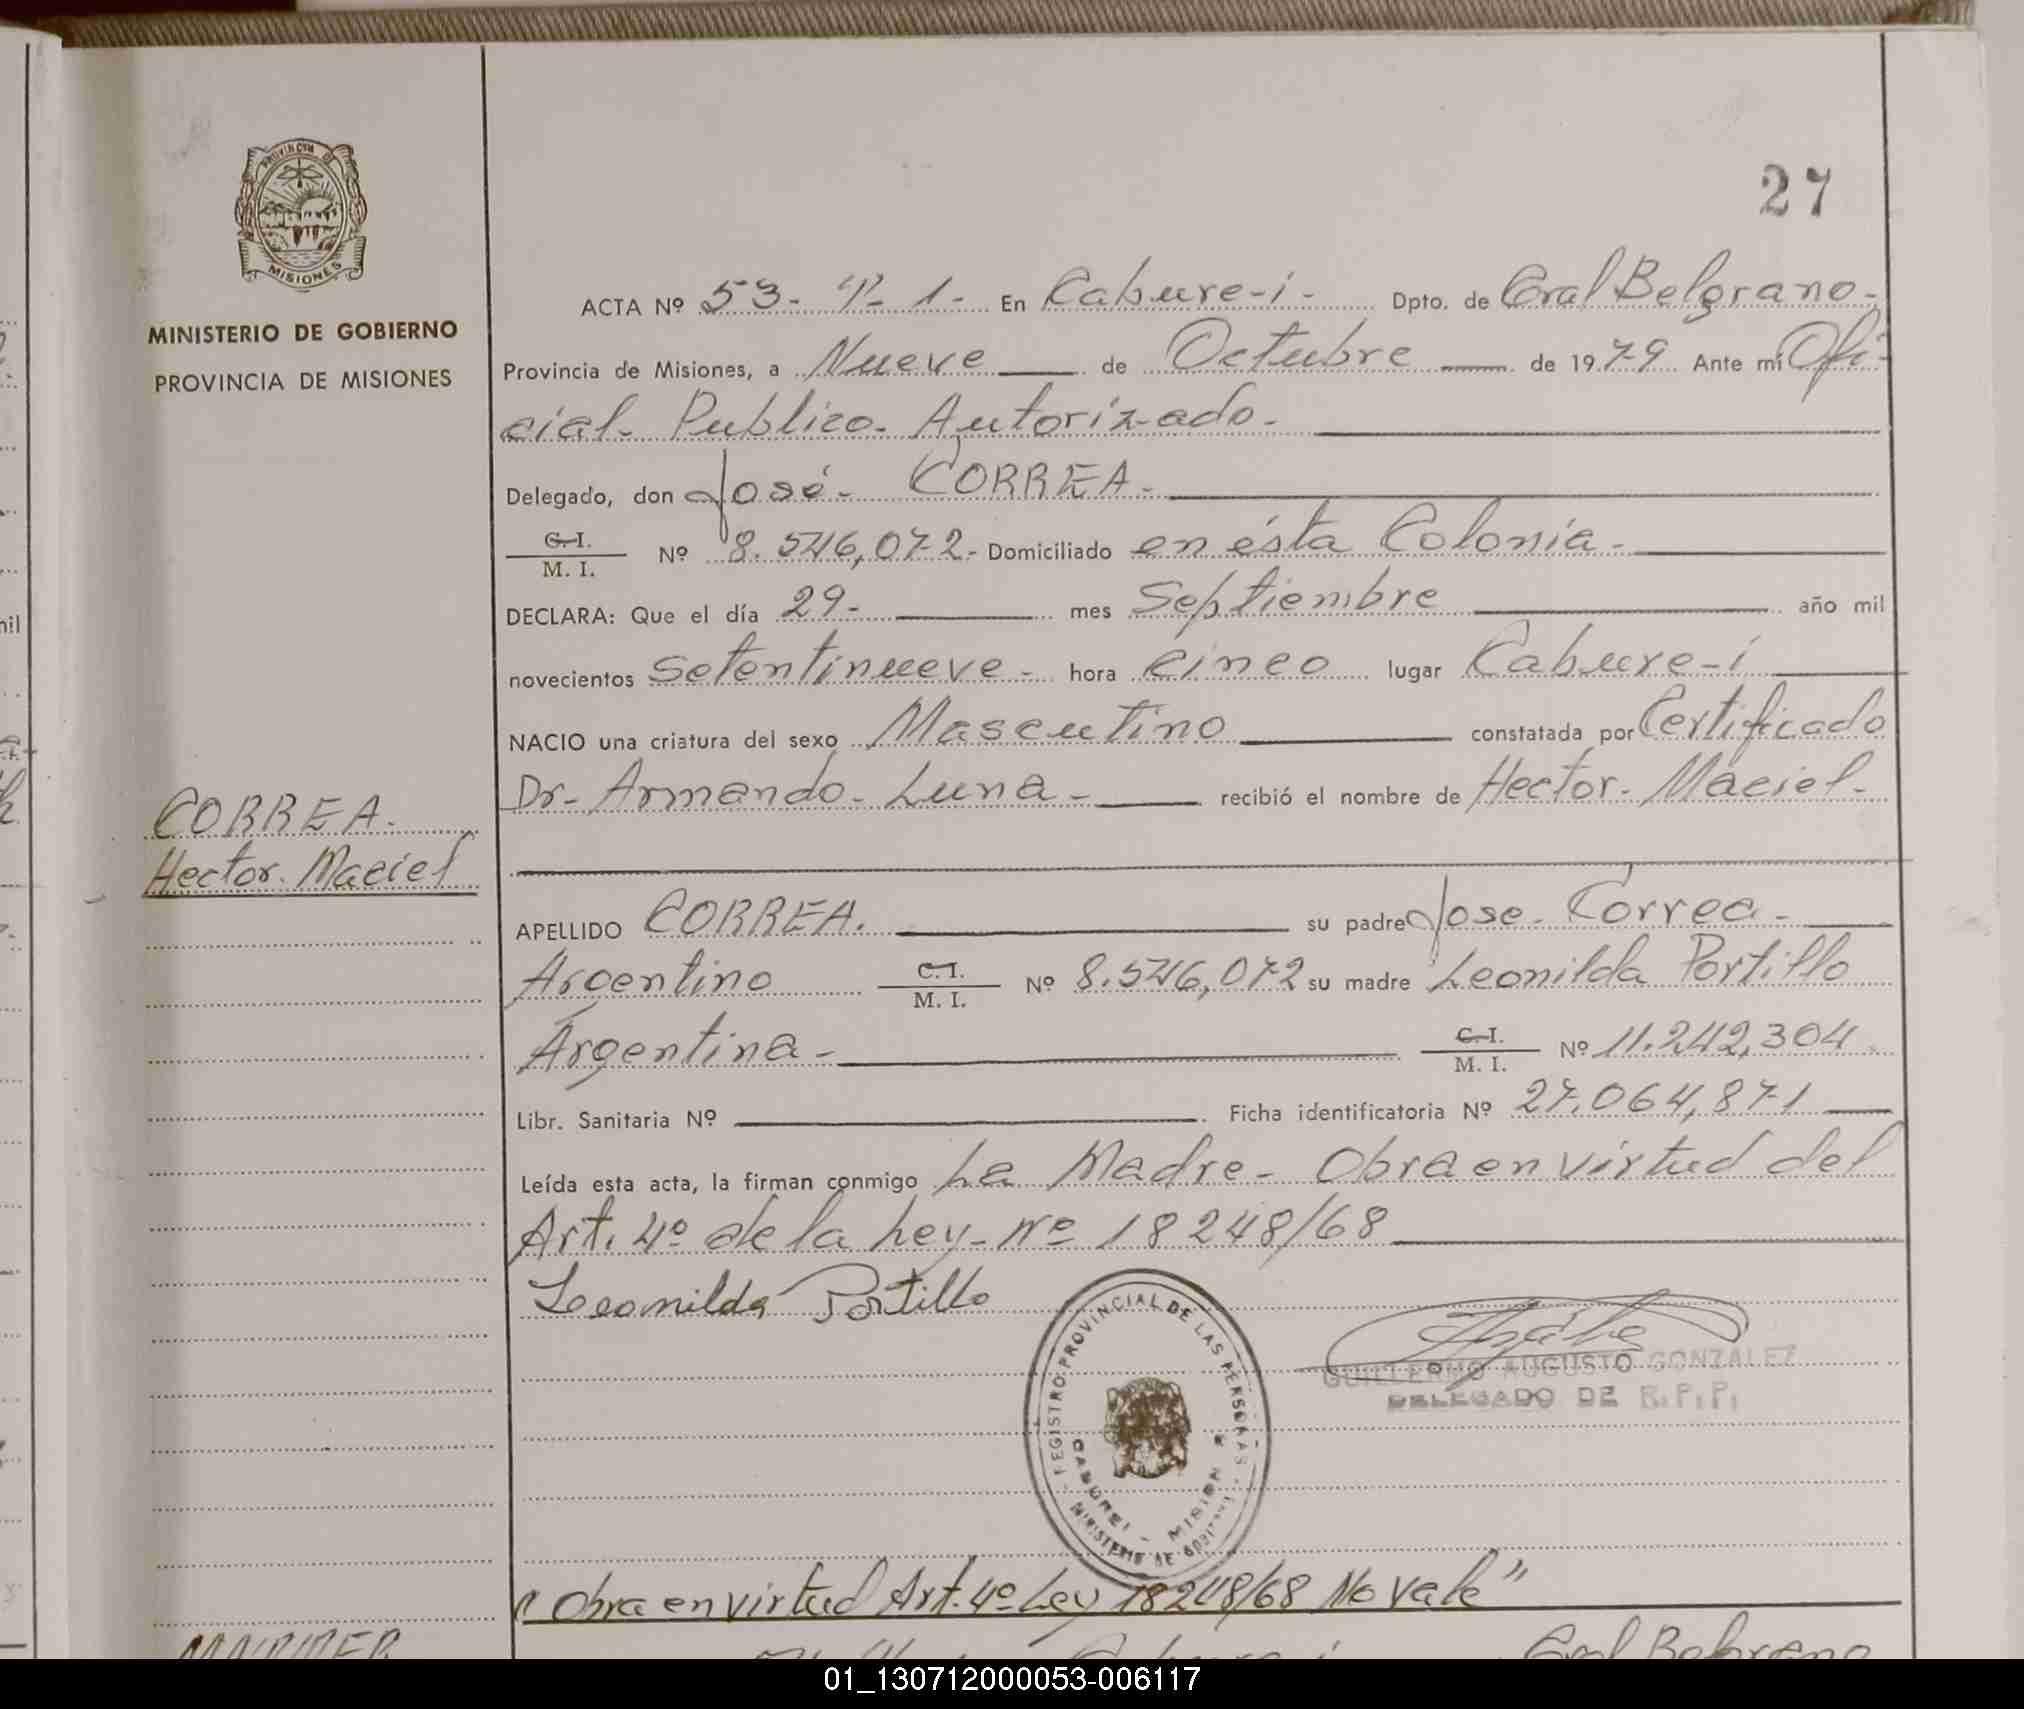 PROVINCIA DE
MISIONES
MINISTERIO DE GOBIERNO
PROVINCIA DE MISIONES
CORREA.
Hector. Maciel
27
ACTA Nº 53- Tº- 1- En Cabure-i- Dpto. de Gral Belgrano-
Provincia de Misiones, a Nueve de Octubre de 1979 Ante mi Ofi-
cial- Publico- Autorizado-
Delegado, don José- CORREA-
C. I.
M. I. Nº 8.546,072- Domiciliado en ésta Colonia-
DECLARA: Que el día 29- mes Septiembre año mil
novecientos Setentinueve- hora cinco lugar Cabure-i
NACIO una criatura del sexo Masculino constatada por Certificado
Dr- Armando- Luna- recibió el nombre de Hector- Maciel-
APELLIDO CORREA. su padre Jose- Correa-
Argentino C. I. M. I. Nº 8.546,072 su madre Leonilda Portillo
Argentina- C. I. M. I. Nº 11.242,304
Libr. Sanitaria Nº Ficha identificatoria Nº 27.064,871
Leída esta acta, la firman conmigo La Madre- Obra en virtud del
Art. 4º de la Ley- Nº 18248/68
Leonilda Portillo
REGISTRO PROVINCIAL DE LAS PERSONAS
CABUREI - MISIONES
MINISTERIO DE GOBIERNO
GUILLERMO AUGUSTO GONZALEZ
DELEGADO DE R.P.P.
"Obra en virtud Art. 4º Ley 18248/68 No vale"
Cabure-i Gral Belgrano
01_130712000053-006117